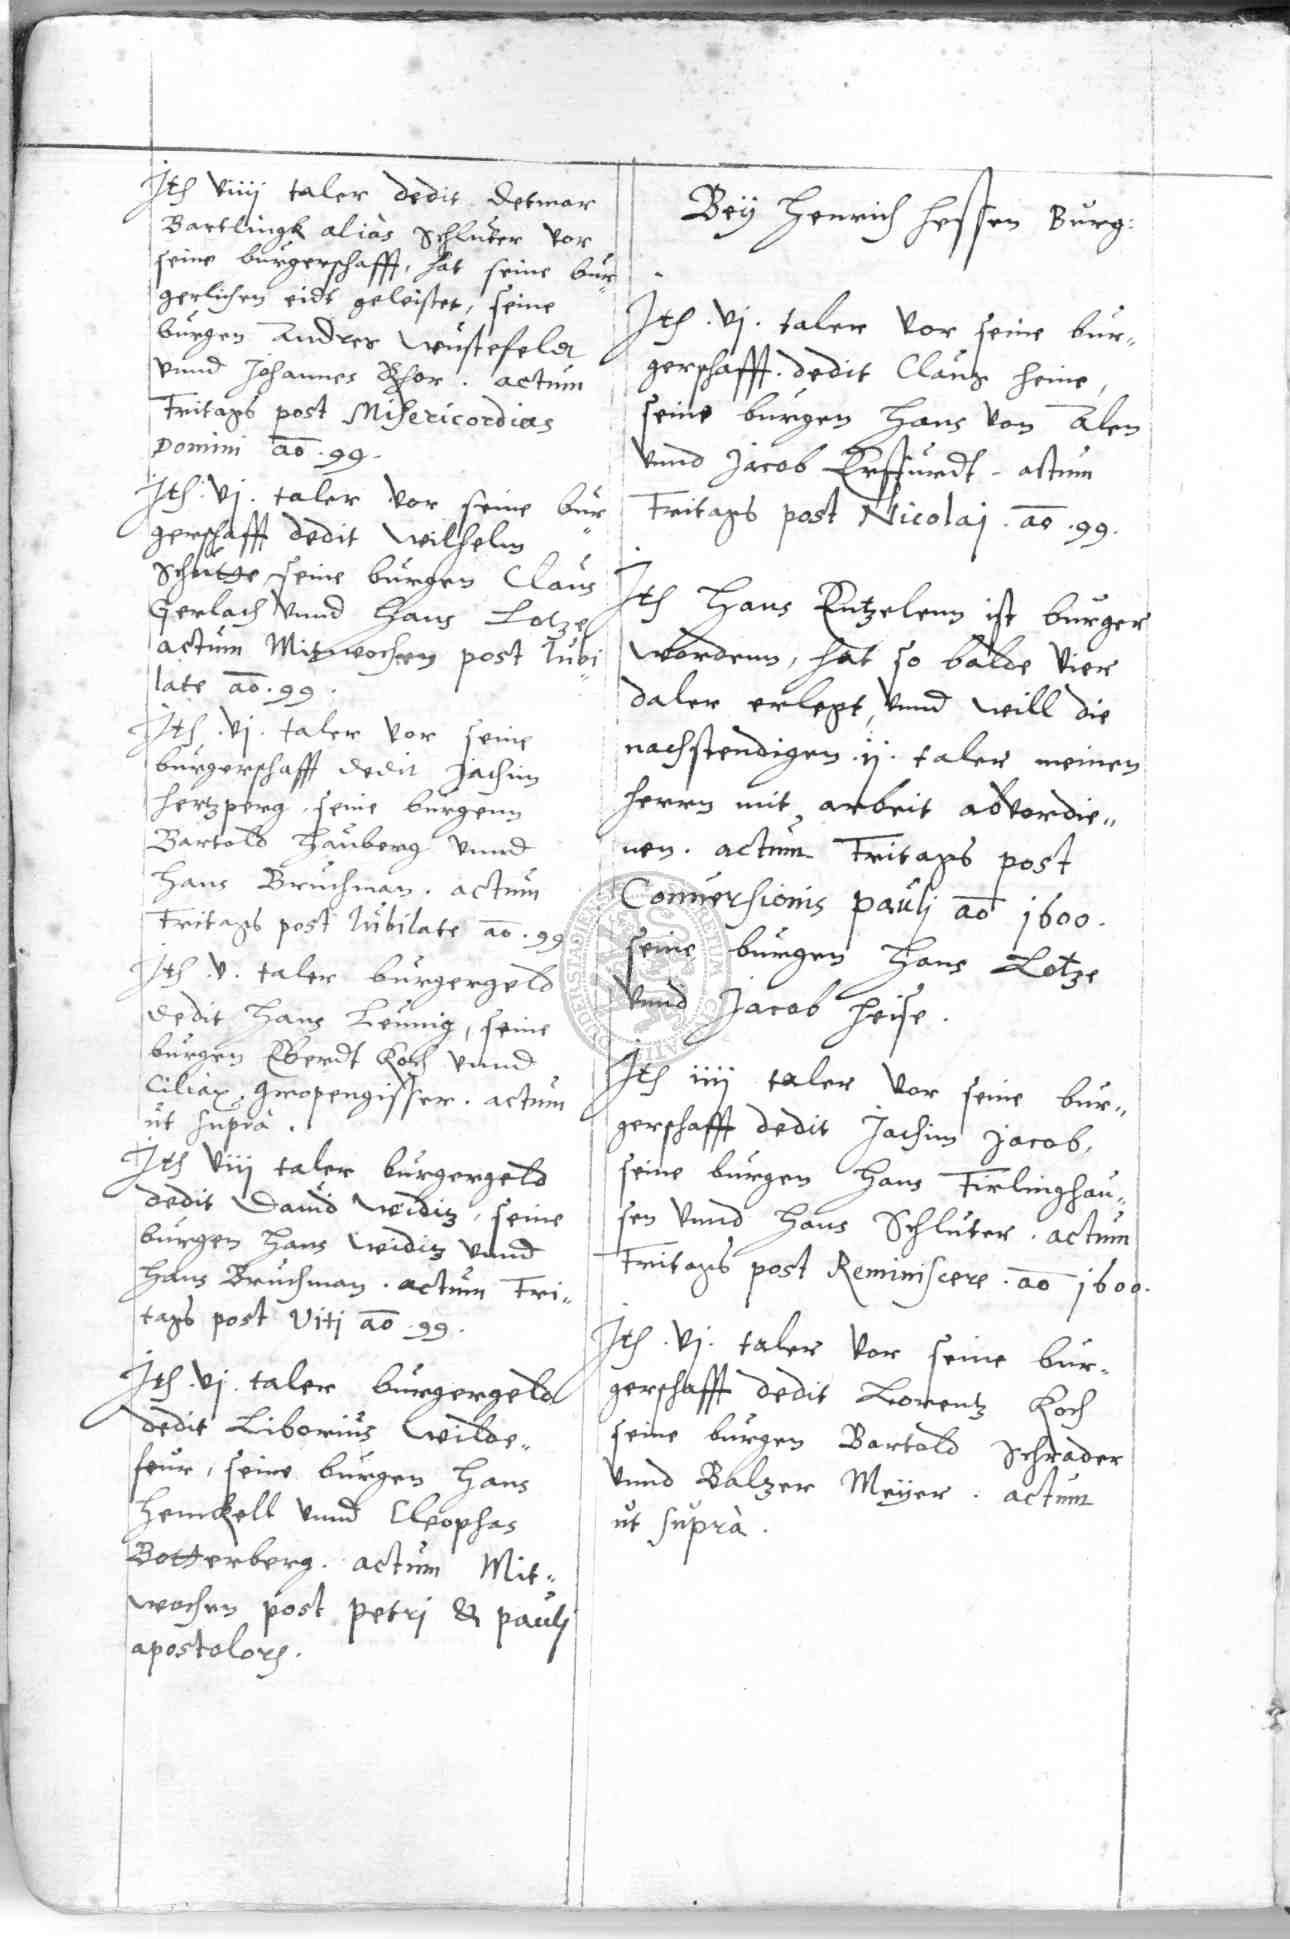 Ith viiij taler dedit Detmar
Bartlingk aliàs Schluter vor
seine burgerschafft, hat seine bur„
gerlichen eidt geleistet, seine
burgen Andres Wustefeldt
vnnd Johannes Rhor. actum
Fritags post Misericordias
Domini aō .99.
Ith .vj. taler vor seine bur„
gerschafft dedit Wilhelm
Schutte, seine burgen Claus
Gerlach vnnd Hans Lotze
actum Mitwochen post Iubi„
late aō .99.
Ith .vj. taler vor seine
burgerschafft dedit Jachim
Hertzperg, seine burgenn
Bartold Hauberg vnnd
Hans Bruchman. actum
Fritags post Iubilate aō .99
Ith .v. taler burgergeld
dedit Hans Leunig, seine
burgen Eberdt Koch vnnd
Ciliax Gropengisser. actum
ut suprà.
Ith viij taler burgergeld
dedit Dauid Widitz, seine
burgen Hans Widitz vnnd
Hans Bruchman. actum Fri„
tags post Viti aō .99.
Ith .vj. taler burgergeld
dedit Liborius Wilde„
feur, seine burgen Hans
Henckell vnnd Cleophas
Botterberg. actum Mit„
wochen post Petri & Pauli
apostolorum.
Bey Henrich Hessen Burg:
Ith .vj. taler vor seine bur„
gerschafft. dedit Claus Heine,
seine burgen Hans von Alen
vnnd Jacob Erffurdt. actum
Fritags post Nicolaj. aō .99.
Ith Hans Entzelenn ist burger
wordenn, hat so balde vier
daler erlegt, vnnd will die
nachstendigen .ij. taler meinen
herrn mit arbeit abvordie„
nen. actum Fritags post
Conuersionis Pauli aō 1600.
seine burgen Hans Lotze
vnnd Jacob Heise.
Ith iiij taler vor seine bur„
gerschafft dedit Jachim Jacob,
seine burgen Hans Firlinghau„
sen vnnd Hans Schluter. actum
Fritags post Reminiscere. aō 1600.
Ith .vj. taler vor seine bur„
gerschafft dedit Lorentz Koch
seine burgen Bartold Schrader
vnnd Baltzer Meyer. actum
ut suprà.